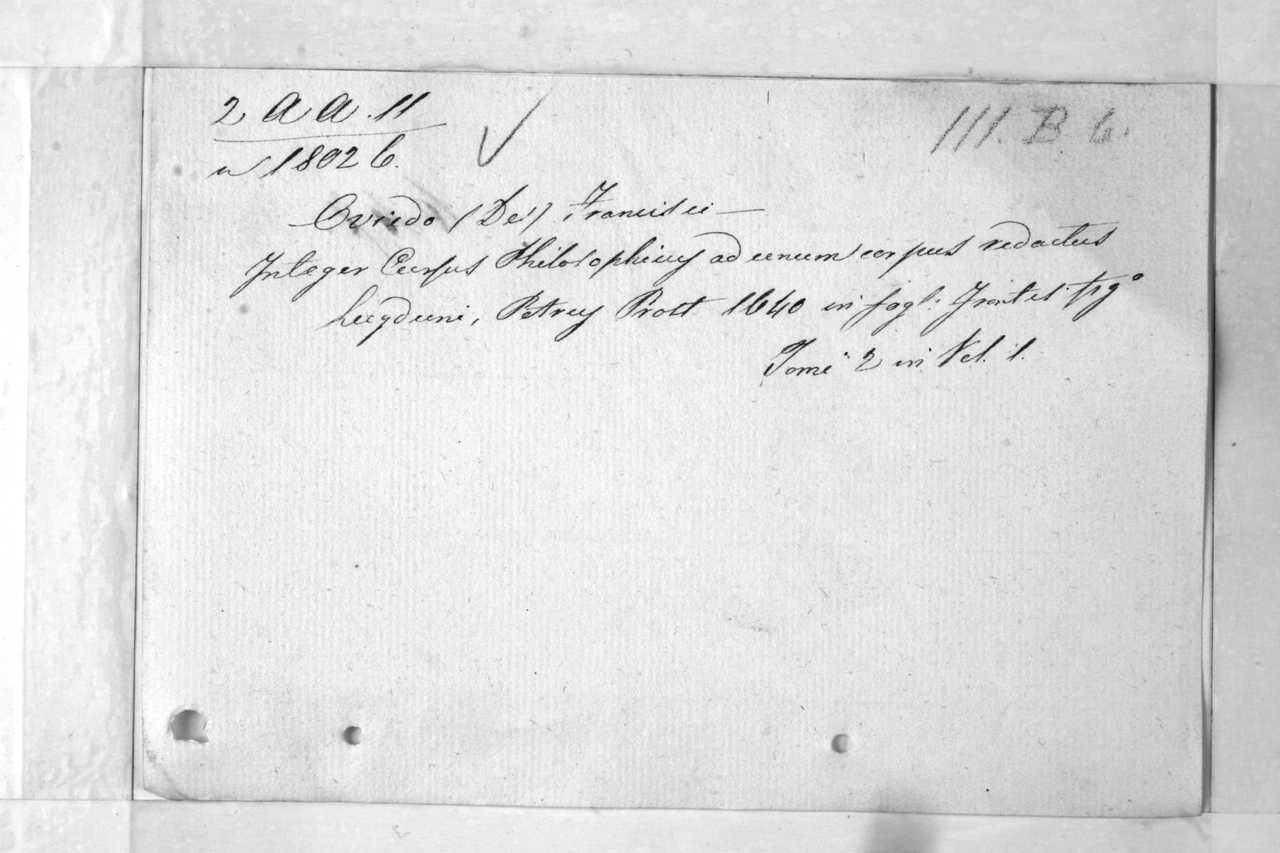 2 A A. 11
III. B 6.
n 1802 6.
— Oviedo (De) Francisci —
Integer Cursus Philosophicus ad unum corpus redactus
Lugduni, Petrus Prost 1640 in fogl. Frontesp. figo
Tomi 2 in Vol. 1.